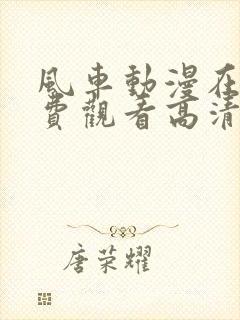 風車動漫在
費觀看高清
唐荣耀